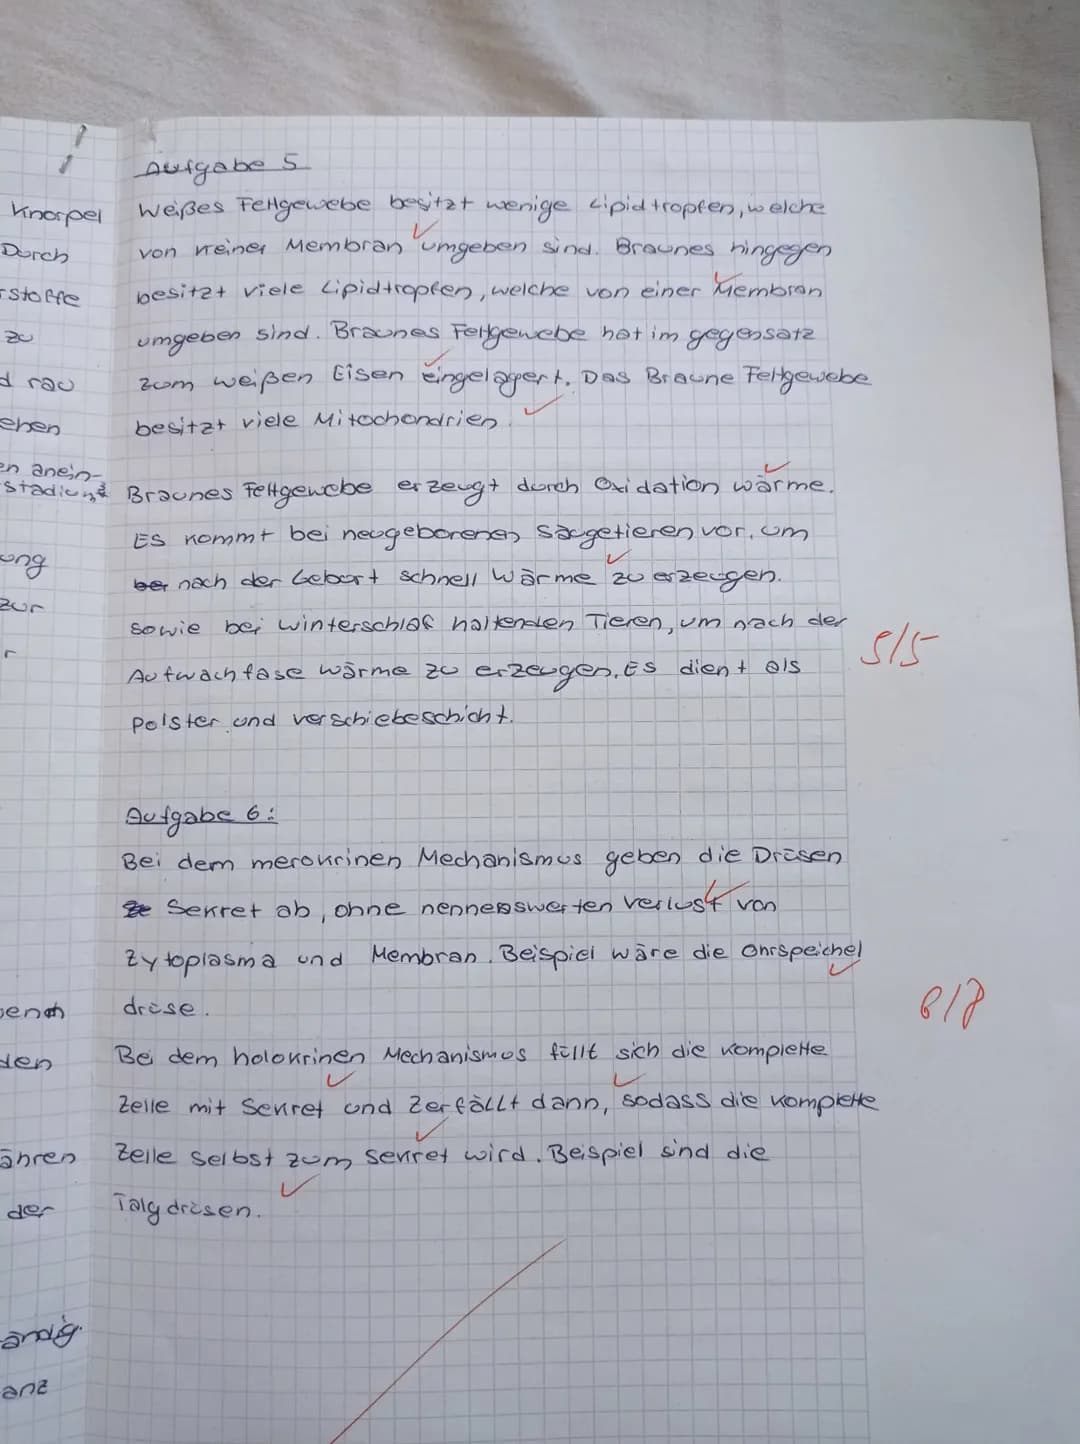 Aufgabe 5
Weißes Fettgewebe besitzt wenige Lipidtropfen, welche
von keiner Membran umgeben sind. Braunes hingegen
besitzt viele Lipidtropfen, welche von einer Membran
umgeben sind. Braunes Fettgewebe hat im gegensatz
zum weißen Eisen eingelagert. Das Braune Fettgewebe
besitzt viele Mitochondrien.
Braunes Fettgewebe erzeugt durch Oxidation wärme.
Es kommt bei neugeborenen Säugetieren vor, um
nach der Geburt schnell Wärme zu erzeugen.
sowie bei winterschlaf haltenden Tieren, um nach der
Aufwachfase wärme zu erzeugen. Es dient als
Polster und verschiebeschicht.
5/5
Aufgabe 6:
Bei dem merokrinen Mechanismus geben die Drüsen
Sekret ab, ohne nennenswerten verlust von
Zytoplasma und Membran. Beispiel wäre die Ohrspeichel
drüse.
Bei dem holokrinen Mechanismus füllt sich die komplette
Zelle mit Sekret und Zerfällt dann, sodass die komplette
Zelle selbst zum sekret wird. Beispiel sind die
Talgdrüsen.
Knorpel
Durch
rstoffe
zu
d rau
ehen
en anein-
ung
zur
r
den
ähren
der
ändig.
anz